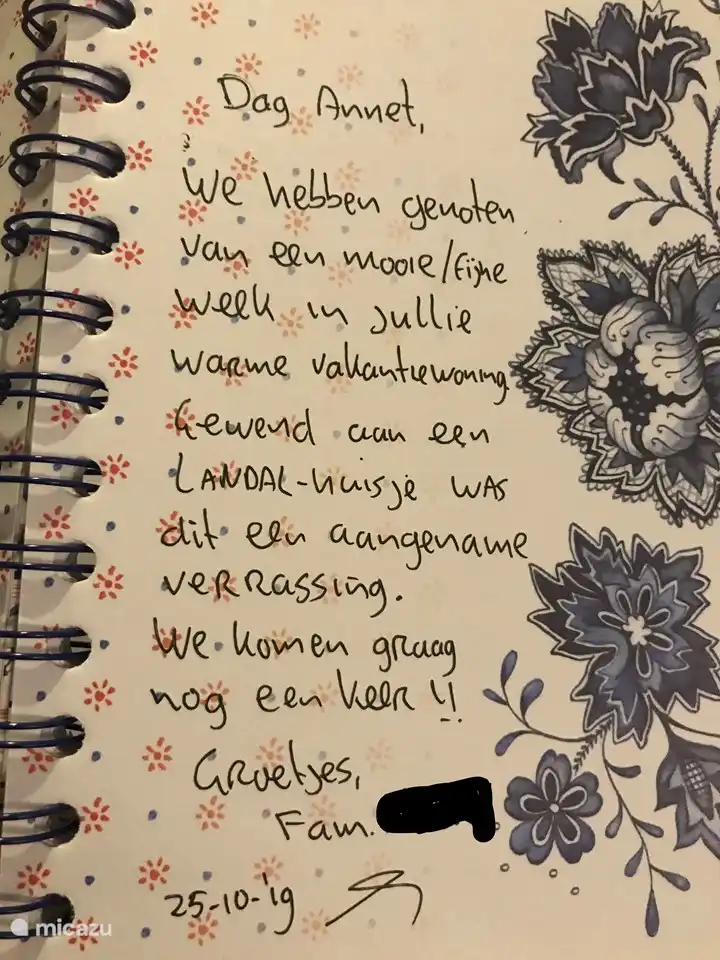 Dag Annet,
We hebben genoten
van een mooie/fijne
week in jullie
warme vakantiewoning
Gewend aan een
LANDAL-huisje was
dit een aangename
verrassing.
We komen graag
nog een keer !!
Groetjes,
Fam.
25-10-'19
micazu